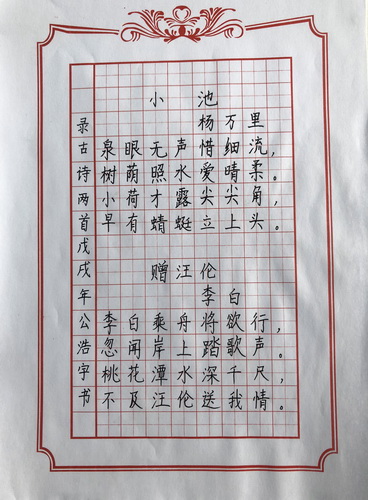 小池
杨万里
泉眼无声惜细流，
树荫照水爱晴柔。
小荷才露尖尖角，
早有蜻蜓立上头。
赠汪伦
李白
李白乘舟将欲行，
忽闻岸上踏歌声。
桃花潭水深千尺，
不及汪伦送我情。
录古诗两首戊戌年公浩宇书